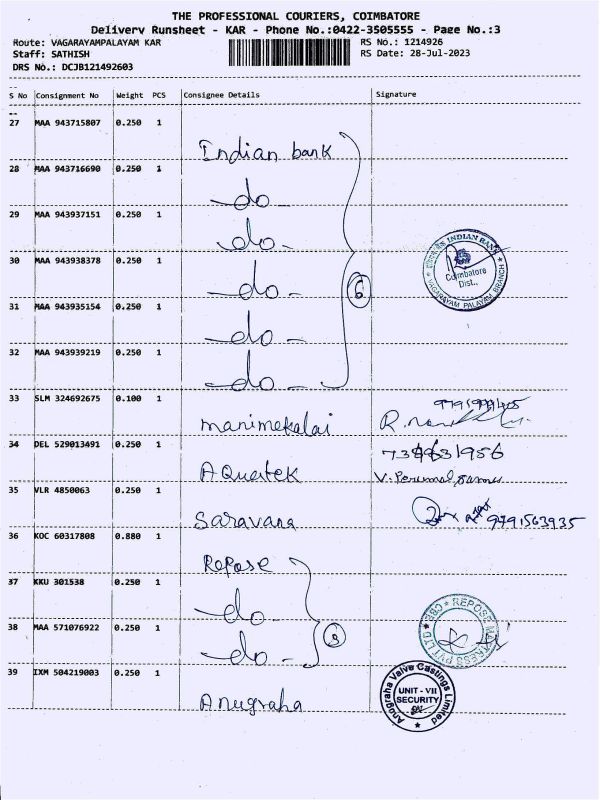 THE PROFESSIONAL COURIERS, COIMBATORE
Delivery Runsheet - KAR - Phone No.:0422-3505555 - Page No.:3
Route: VAGARAYAMPALAYAM KAR RS No.: 1214926
Staff: SATHISH RS Date: 28-Jul-2023
DRS No.: DCJB121492603
--
S No Consignment No Weight PCS Consignee Details Signature
--
27 MAA 943715807 0.250 1 Indian bank
28 MAA 943716690 0.250 1 - do -
29 MAA 943937151 0.250 1 - do -
30 MAA 943938378 0.250 1 - do - 6
INDIAN BANK
Coimbatore
Dist.,
VAGARAYAM PALAYAM BRANCH
31 MAA 943935154 0.250 1 - do -
32 MAA 943939219 0.250 1 - do -
33 SLM 324692675 0.100 1 manimekalai
34 DEL 529013491 0.250 1 AQuatek
V. Perumal samy
35 VLR 4850063 0.250 1 Saravana 9791563935
36 KOC 60317808 0.880 1 Repose
37 KKU 301538 0.250 1 - do -
38 MAA 571076922 0.250 1 - do - 3
REPOSE MATTRESS PVT LTD CBE
39 IXM 504219003 0.250 1 Anugraha
Anugraha Valve Castings Limited
UNIT - VII
SECURITY